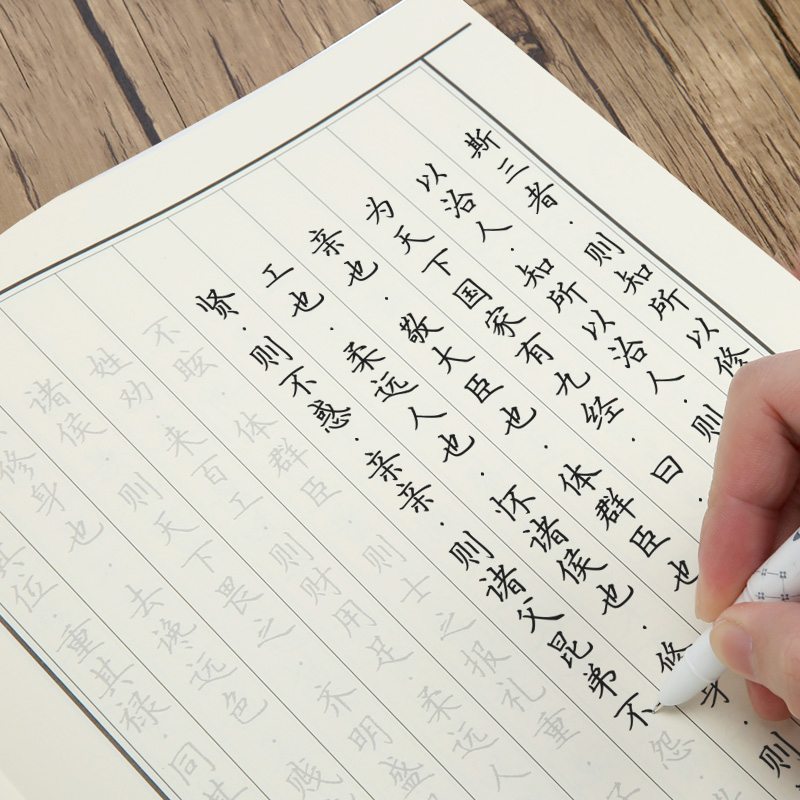 斯三者·则知所以修
以治人·知所以治人·则
为天下国家有九经·曰·
亲也·敬大臣也·体群臣也
工也·柔远人也·怀诸侯也·修身则
贤·则不惑·亲亲·则诸父昆弟不怨
不眩·体群臣·则士之报礼重
姓劝·来百工·则财用足·柔远人
诸侯·则天下畏之·齐明盛
修身也·去谗远色·贱
其位·重其禄·同其